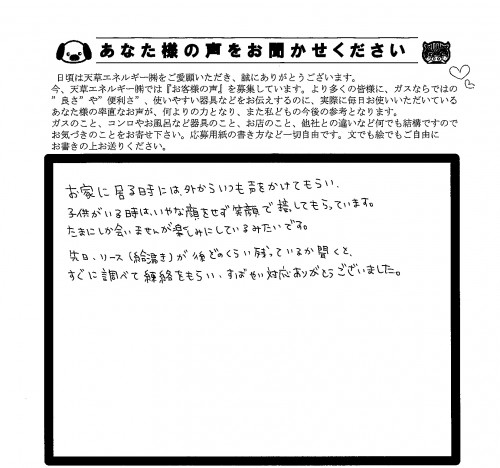 あなた様の声をお聞かせください
日頃は天草エネルギー㈱をご愛願いただき、誠にありがとうございます。
今、天草エネルギー㈱では『お客様の声』を募集しています。より多くの皆様に、ガスならではの
”良さ”や”便利さ”、使いやすい器具などをお伝えするのに、実際に毎日お使いいただいている
あなた様の率直なお声が、何よりの力となり、また私どもの今後の参考となります。
ガスのこと、コンロやお風呂など器具のこと、お店のこと、他社との違いなど何でも結構ですので
お気づきのことをお寄せ下さい。応募用紙の書き方など一切自由です。文でも絵でもご自由に
お書きの上お送りください。
お家に居る時には、外からいつも声をかけてもらい、
子供がいる時は、いやな顔をせず笑顔で接してもらっています。
たまにしか会いませんが楽しみにしているみたいです。
先日、リース(給湯き)が後どのくらい残っているか聞くと、
すぐに調べて連絡をもらい、すばやい対応ありがとうございました。